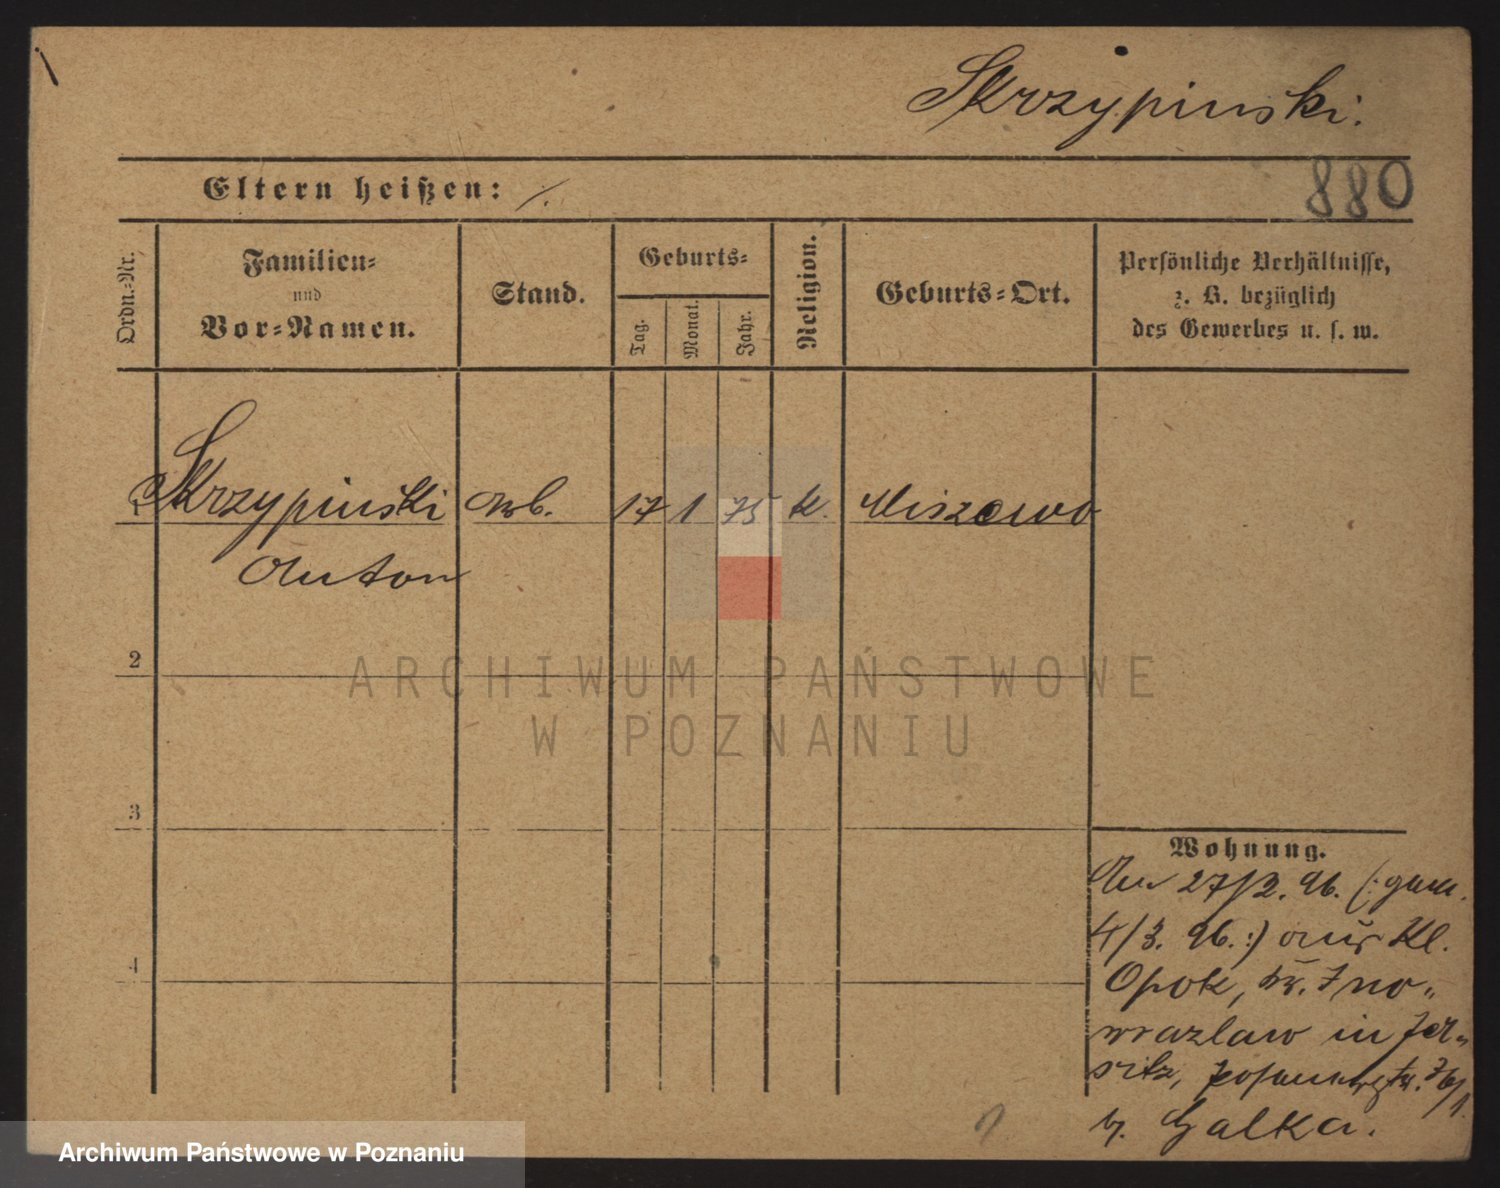 Skrzypinski.
880
Eltern heißen: ./.
Ordn.-Nr.
Familien-
und
Vor-Namen.
Stand.
Geburts-
Tag.
Monat.
Jahr.
Religion.
Geburts-Ort.
Persönliche Verhältnisse,
z. B. bezüglich
des Gewerbes u. s. w.
Skrzypinski Arb. 17 1 75 k. Miszewo
Anton
2
3
4
Wohnung.
27/2. 96. (: gem.
4/3. 96. :) aus Kl.
Opok, Kr. Ino-
wrazlaw in Jer-
sitz,
b. Galka.
ARCHIWUM PAŃSTWOWE
W POZNANIU
Archiwum Państwowe w Poznaniu